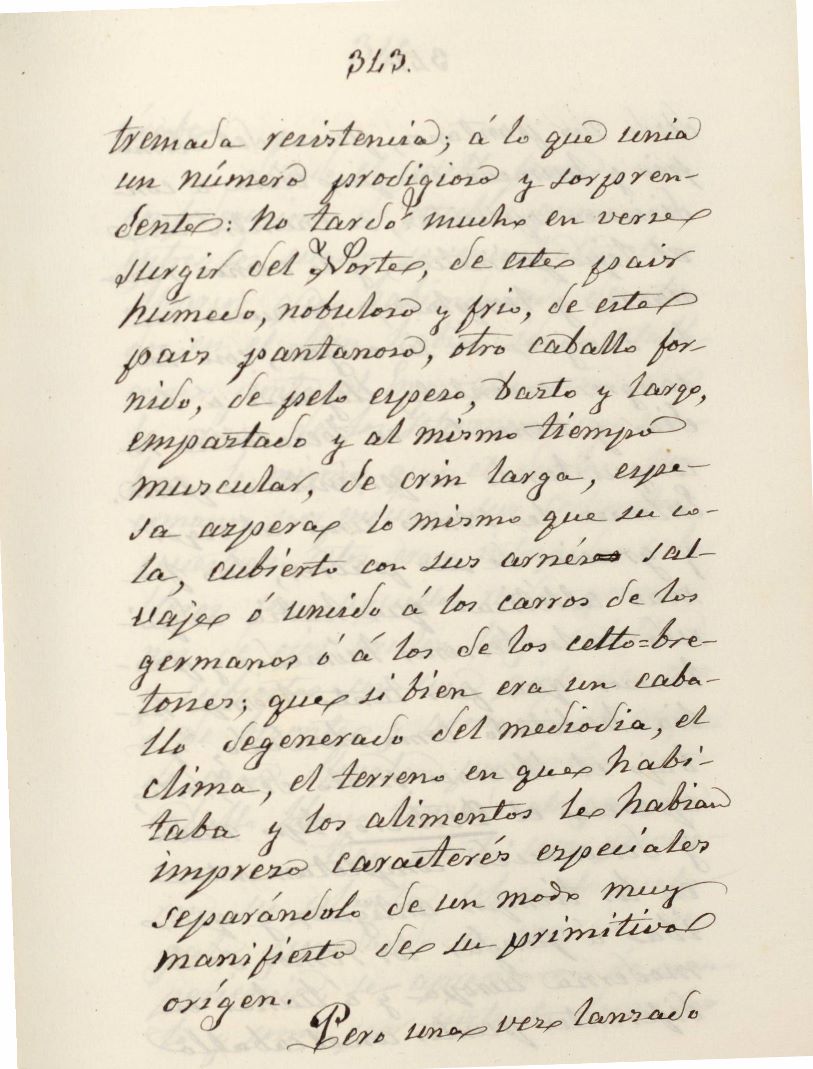 343.
tremada resistencia; á lo que unia
un número prodigioso y sorpren-
dente: No tardó mucho en verse
surgir del Norte, de este pais
húmedo, nobuloso y frio, de este
pais pantanoso, otro caballo for-
nido, de pelo espeso, basto y largo,
empastado y al mismo tiempo
muscular, de crin larga, espe-
sa aspera lo mismo que su co-
la, cubierto con sus arnés sal-
vaje ó uncido á los carros de los
germanos ó á los de los celto=bre-
tones; que si bien era un caba-
llo degenerado del mediodia, el
clima, el terreno en que habi-
taba y los alimentos le habian
impreso caracterés especiales
separándolo de un modo muy
manifiesto de su primitivo
orígen.
Pero una vez lanzado